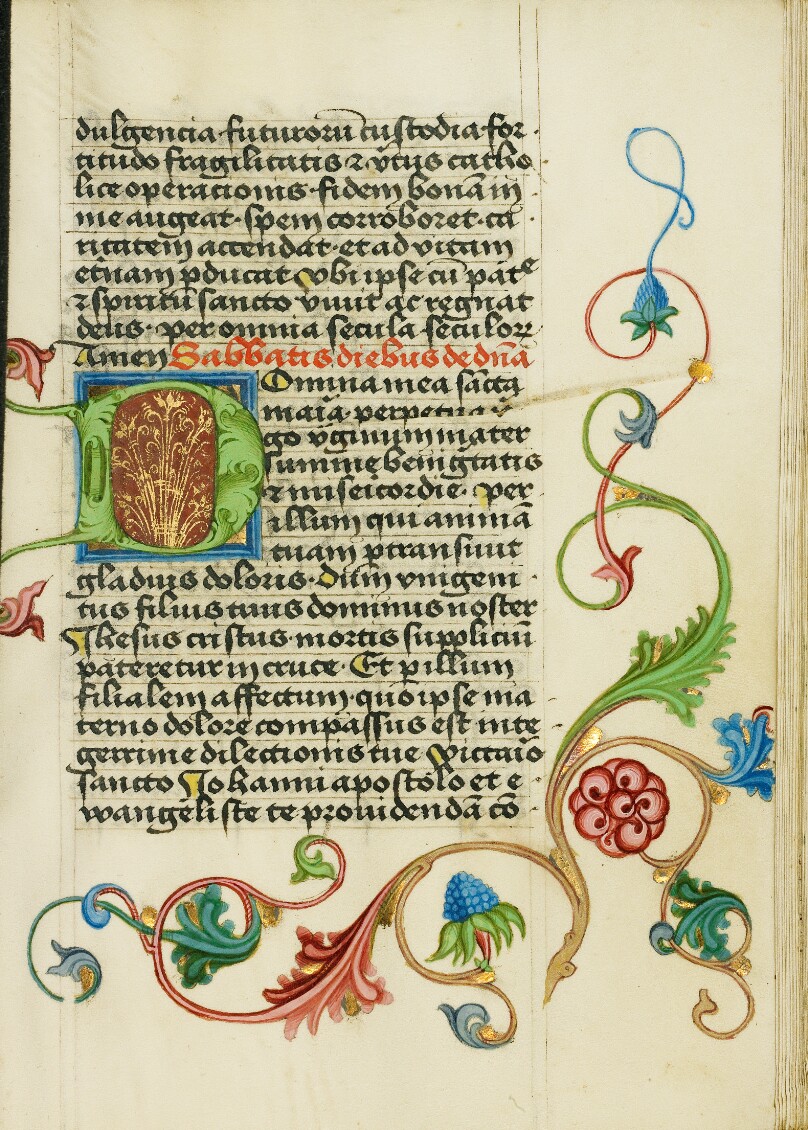 dulgencia·futurorū custodia·for
titudo fragilitatis ⁊ v̾tus catho
lice operacionis·fidem bonā in
me augeat·spem corroboret·ca
ritatem accendat·et ad vitam
et̾nam ꝑducat Vbi ipse cū pat̾e
⁊ spiritū sancto viuit ac regnat
deus·per omnia secula·seculoꝝ
Amen Sabbatis diebus de dn̄a
Domina mea sācta
maīa·perpetua v̾
go v̾ginum mater
summe benig̾tatis
⁊ misericordie·per
illum qui animā
tuam ꝑtransiuit
gladius doloris·Dum vnigeni
tus filius tuus dominus noster
Jhesus cristus·mortis suppliciū
pateretur in cruce·Et ꝑ illum
filialem affectum·quo ipse ma
terno dolore compassus est inte
gerrime dilectionis tue
sancto Johanni apostolo et e
wangeliste te prouidendā cō